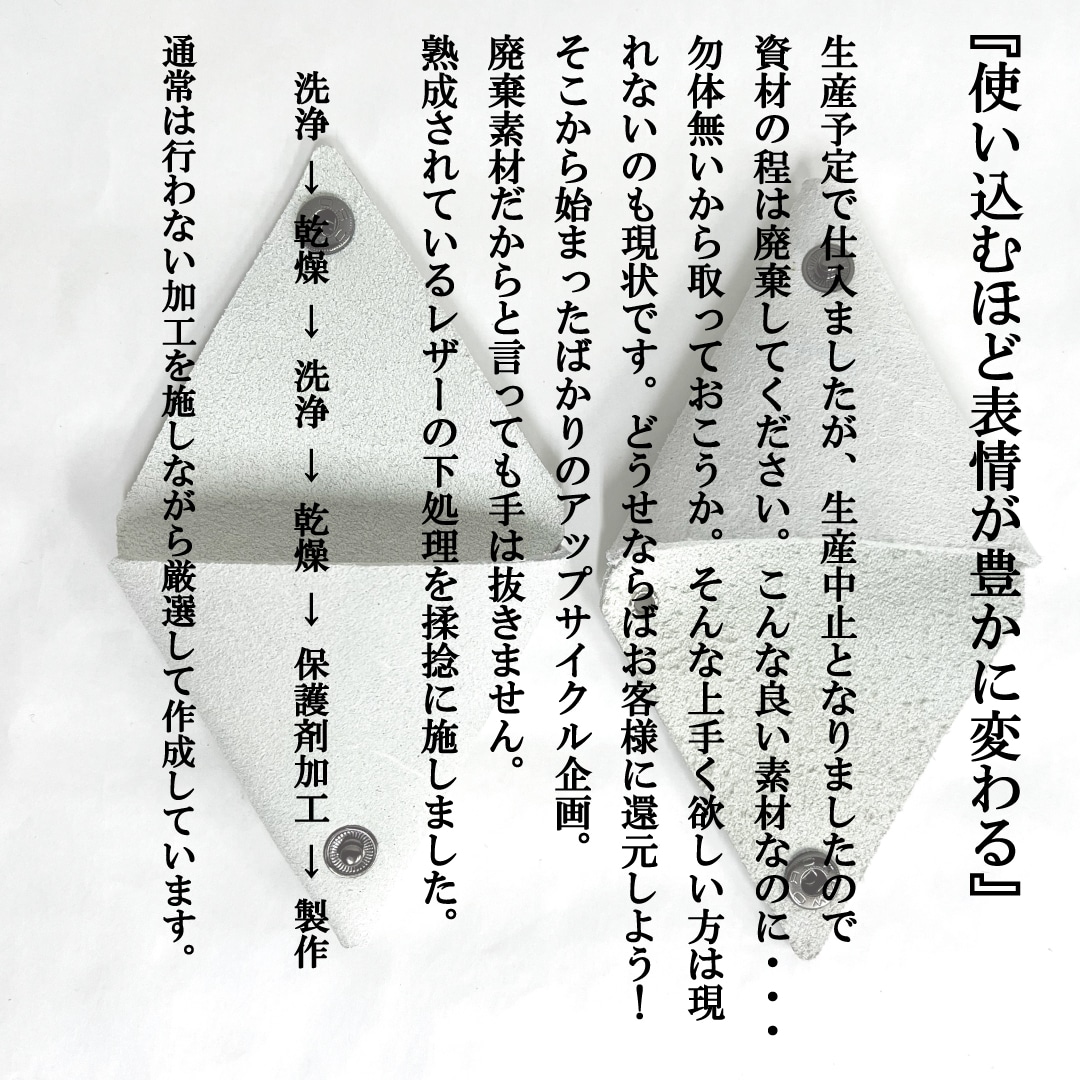 『使い込むほど表情が豊かに変わる』
生産予定で仕入ましたが、生産中止となりましたので
資材の程は廃棄してください。こんな良い素材なのに・・・
勿体無いから取っておこうか。そんな上手く欲しい方は現
れないのも現状です。どうせならばお客様に還元しよう！
そこから始まったばかりのアップサイクル企画。
廃棄素材だからと言っても手は抜きません。
熟成されているレザーの下処理を揉捻に施しました。
洗浄→乾燥→洗浄→乾燥→保護剤加工→製作
通常は行わない加工を施しながら厳選して作成しています。